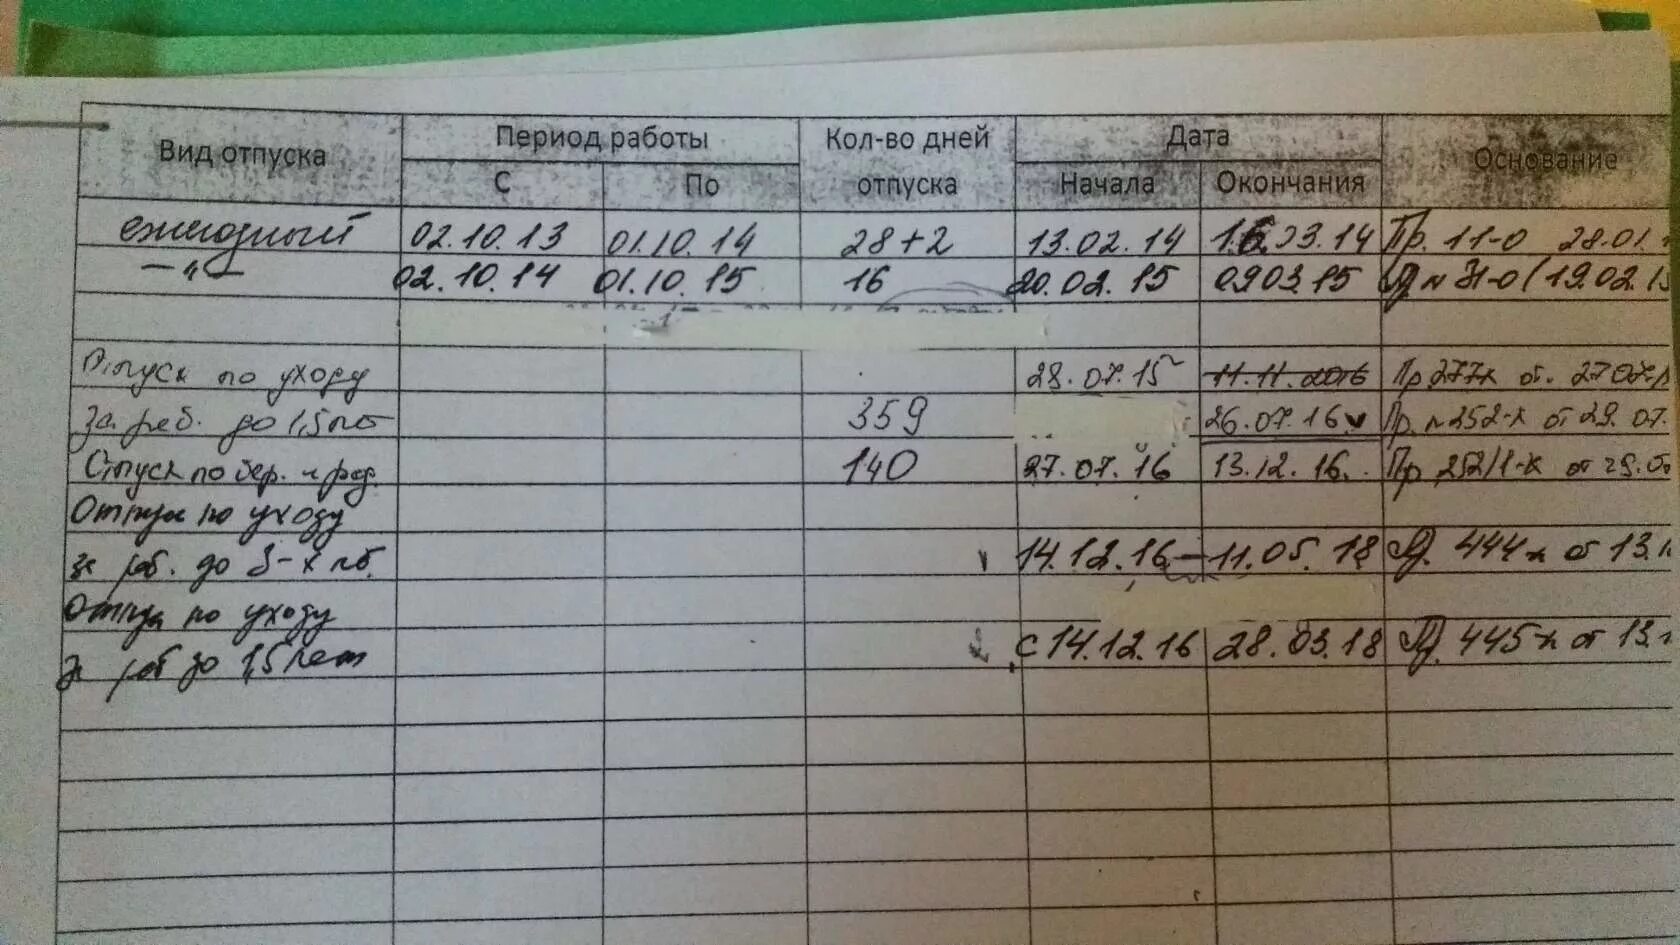 Вид отпуска Период работы Кол-во дней отпуска Дата Основание
С По Начала Окончания
ежегодный 02.10.13 01.10.14 28+2 13.02.14 16.03.14 Пр. 11-О 28.01.1
—"— 02.10.14 01.10.15 16 20.02.15 09.03.15 Пр № 31-О (19.02.15
Отпуск по уходу 28.07.15 11.11.2016 Пр 277к от. 27.07.1
за реб. до 1,5 лет 359 26.07.16 Пр. №252-к от 29.07.
Отпуск по бер. и род. 140 27.07.16 13.12.16. Пр 252/1-к от
Отпуск по уходу
за реб. до 3-х лет. 14.12.16 — 11.05.18 Пр. 444-к от 13.1
Отпуск по уходу
за реб до 1,5 лет с 14.12.16 28.03.18 Пр. 445-к от 13.1